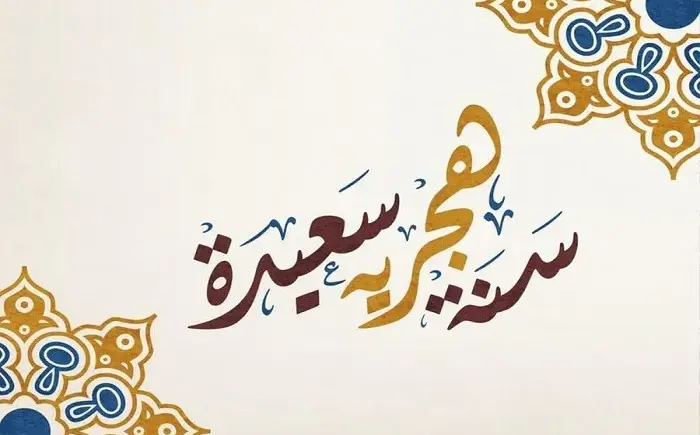 سنة هجرية سعيدة